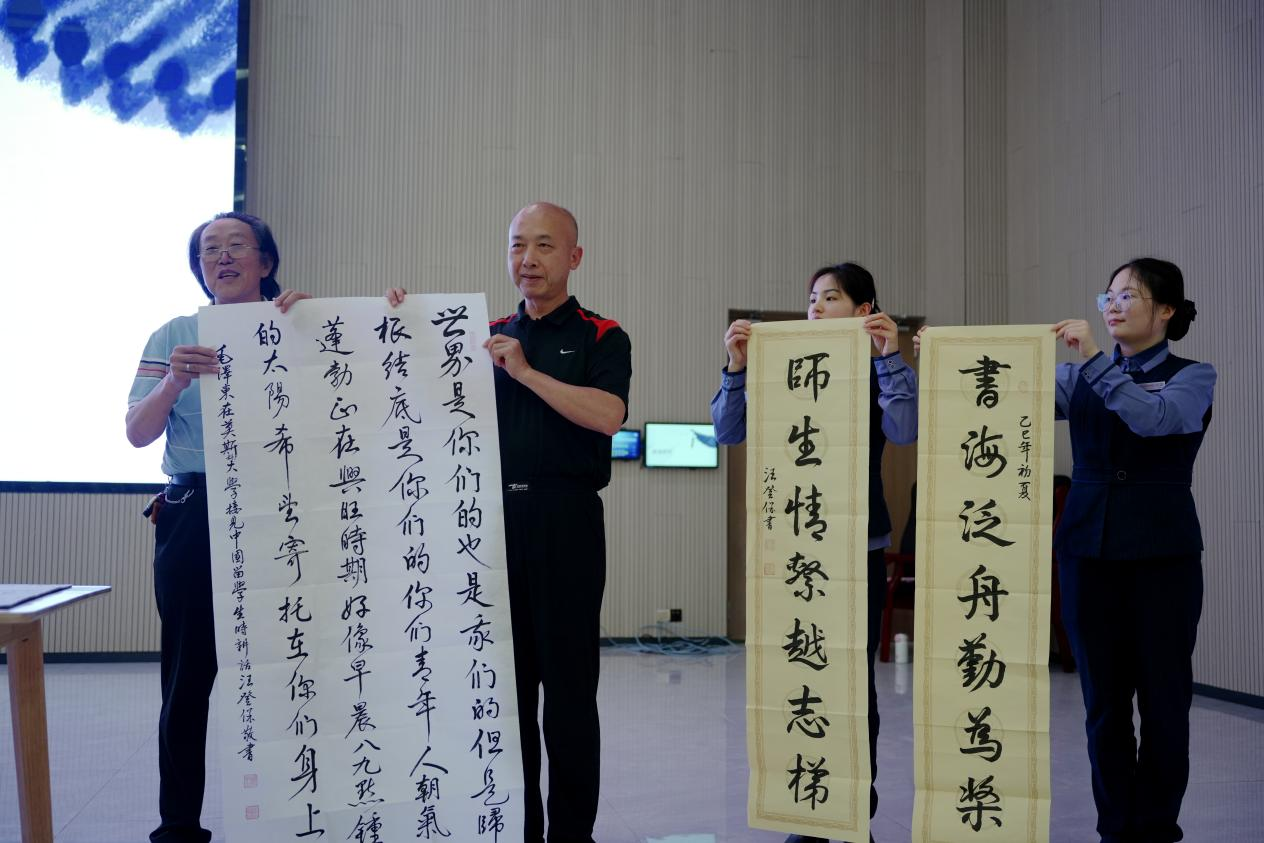 世界是你们的也是我们的但是歸
根结底是你们的你们青年人朝氣
蓬勃正在興旺時期好像早晨八九點鍾
的太陽希望寄托在你们身上
毛澤東在莫斯大學接見中國留學生時講話汪登保敬書
書海泛舟勤為槳
乙巳年初夏
師生情繫越志梯
汪登保書